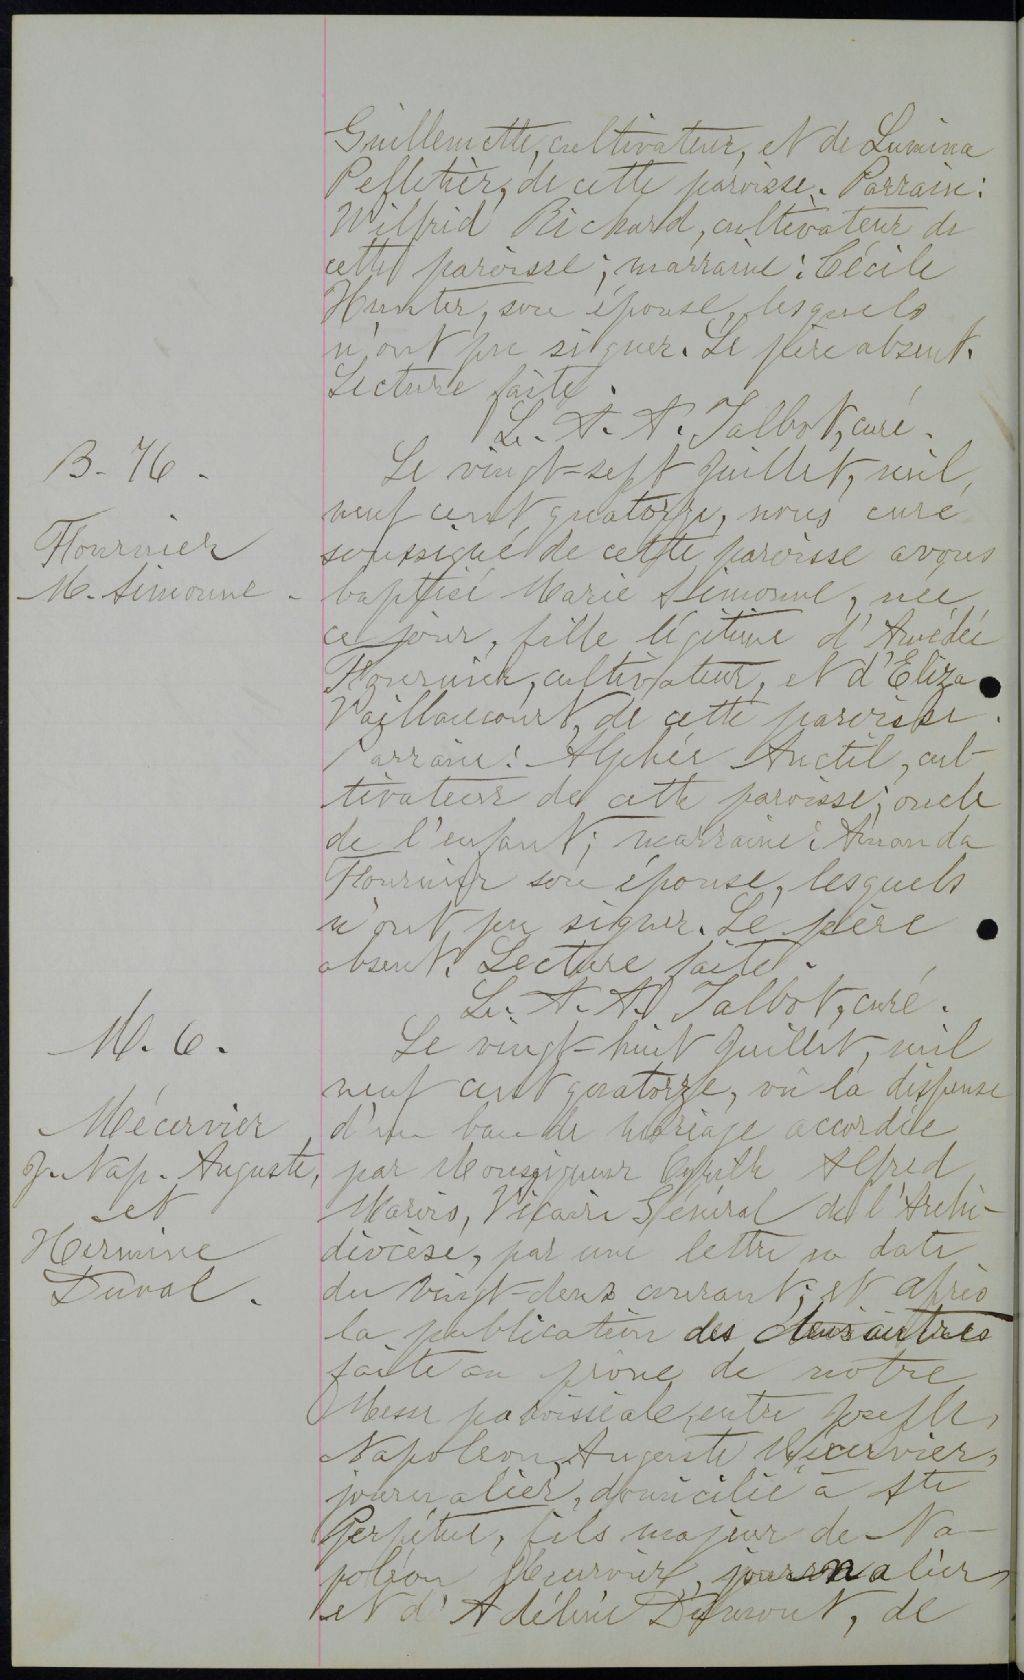 Guillemette, cultivateur, et de Lumina
Pelletier, de cette paroisse. Parrain:
Wilfrid Richard, cultivateur de
cette paroisse; marraine: Cécile
Hunter, son épouse, lesquels
n'ont pu signer. Le père absent.
Lecture faite.
L. A. A. Talbot, curé.
B. 76.
Fournier
M. Simonne.
Le vingt-sept Juillet, mil
neuf cent quatorze, nous curé
soussigné de cette paroisse avons
baptisé Marie Simonne, née
ce jour, fille légitime d'Amédée
Fournier, cultivateur, et d'Eliza
Vaillancourt, de cette paroisse.
Parrain: Alphée Anctil, cul-
tivateur de cette paroisse; oncle
de l'enfant; marraine: Amanda
Fournier son épouse, lesquels
n'ont pu signer. Le père
absent. Lecture faite.
L. A. A. Talbot, curé.
M. 6.
Mécervier
J. Nap. Auguste,
et
Hermine
Duval.
Le vingt-huit Juillet, mil
neuf cent quatorze, vû la dispense
d'un ban de mariage accordée
par Monseigneur Cyrille Alfred
Marois, Vicaire Général de l'Archi-
diocèse, par une lettre en date
du vingt-deux courant; et après
la publication des deux autres
faite au prône de notre
Messe paroissiale, entre Joseph,
Napoléon, Auguste Mécervier,
journalier, domicilié à Ste
Perpétue, fils majeur de Na-
poléon Mécervier, journalier,
et d'Adéline Dumont, de